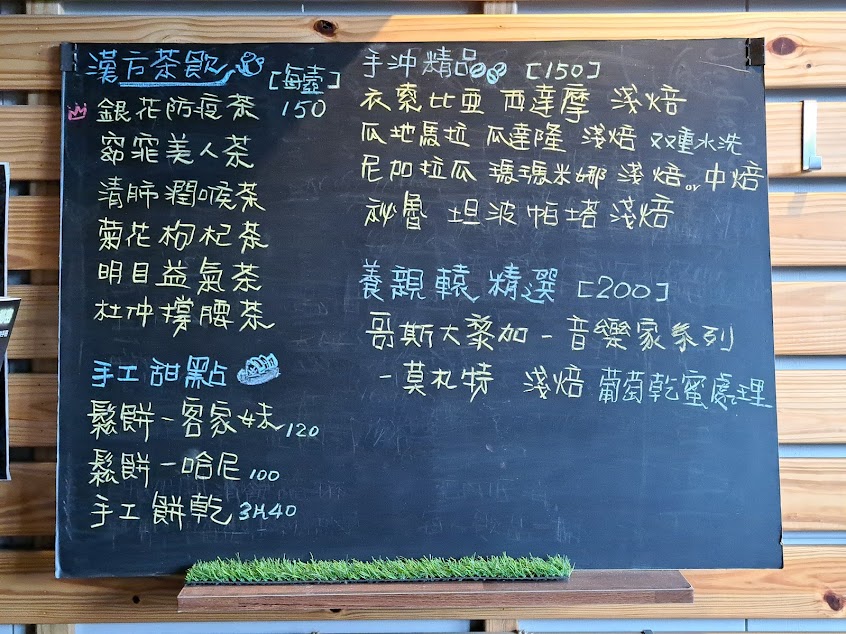 漢方茶飲 [每壺]
銀花防疫茶 150
窈窕美人茶
清肝潤喉茶
菊花枸杞茶
明目益氣茶
杜仲撐腰茶
手工甜點
鬆餅-客家妹 120
鬆餅-哈尼 100
手工餅乾 3片40
手沖精品 [150]
衣索比亞 西達摩 淺焙
瓜地馬拉 瓜達隆 淺焙 双重水洗
尼加拉瓜 瑪瑪米娜 淺焙 or 中焙
祕魯 坦波帕塔 淺焙
養親轅 精選 [200]
哥斯大黎加-音樂家系列
-莫札特 淺焙 葡萄乾蜜處理